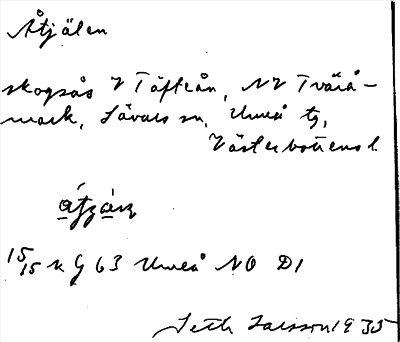 Åtjälen
skogsås V Täfteån, NV Tvärå-
mark, Sävars sn, Umeå tg,
Västerbottens l.
15/15 k G 63 Umeå NO D1
Seth Larsson 1935